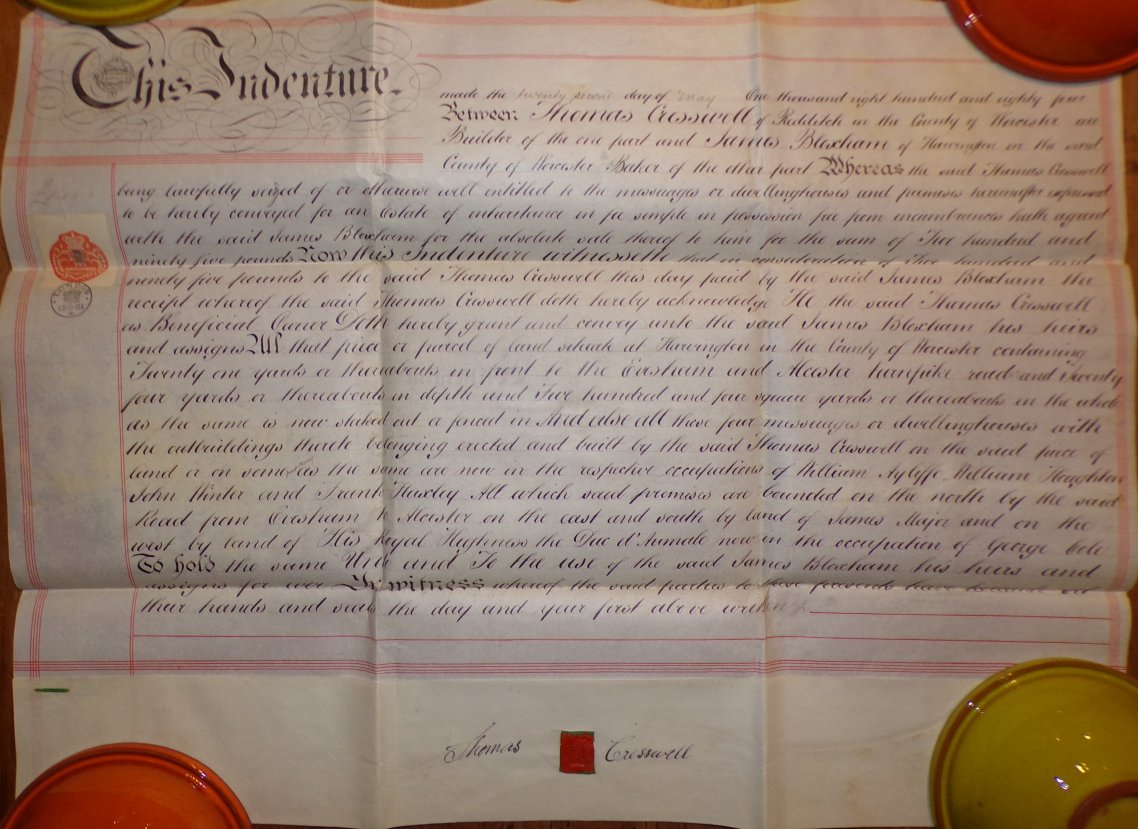 This Indenture.
made the twenty second day of May One thousand eight hundred and eighty four
Between Thomas Cresswell of Redditch in the County of Worcester
Builder of the one part and James Bloxham of Harvington in the said
County of Worcester Baker of the other part Whereas the said Thomas Cresswell
being lawfully seized of or otherwise well entitled to the messuages or dwellinghouses and premises hereinafter expressed
to be hereby conveyed for an Estate of inheritance in fee simple in possession free from incumbrances hath agreed
with the said James Bloxham for the absolute sale thereof to him for the sum of Five hundred and
ninety five pounds Now this Indenture witnesseth that in consideration of Five hundred and
ninety five pounds to the said Thomas Cresswell this day paid by the said James Bloxham the
receipt whereof the said Thomas Cresswell doth hereby acknowledge He the said Thomas Cresswell
as Beneficial Owner Doth hereby grant and convey unto the said James Bloxham his heirs
and assigns All that piece or parcel of land situate at Harvington in the County of Worcester containing
Twenty one yards or thereabouts in front to the Evesham and Alcester turnpike road and Twenty
four yards or thereabouts in depth and Five hundred and four square yards or thereabouts in the whole
as the same is now staked out or fenced in And also all those four messuages or dwellinghouses with
the outbuildings thereto belonging erected and built by the said Thomas Cresswell on the said piece of
land or on some part as the same are now in the respective occupations of William Ayliffe William Haughton
John Winter and Frank Huxley All which said premises are bounded on the north by the said
Road from Evesham to Alcester on the east and south by land of James Major and on the
west by land of His Royal Highness the Duc d'Aumale now in the occupation of George Cole
To hold the same Unto and To the use of the said James Bloxham his heirs and
assigns for ever In witness whereof the said parties to these presents have hereunto set
their hands and seals the day and year first above written
Thomas Cresswell